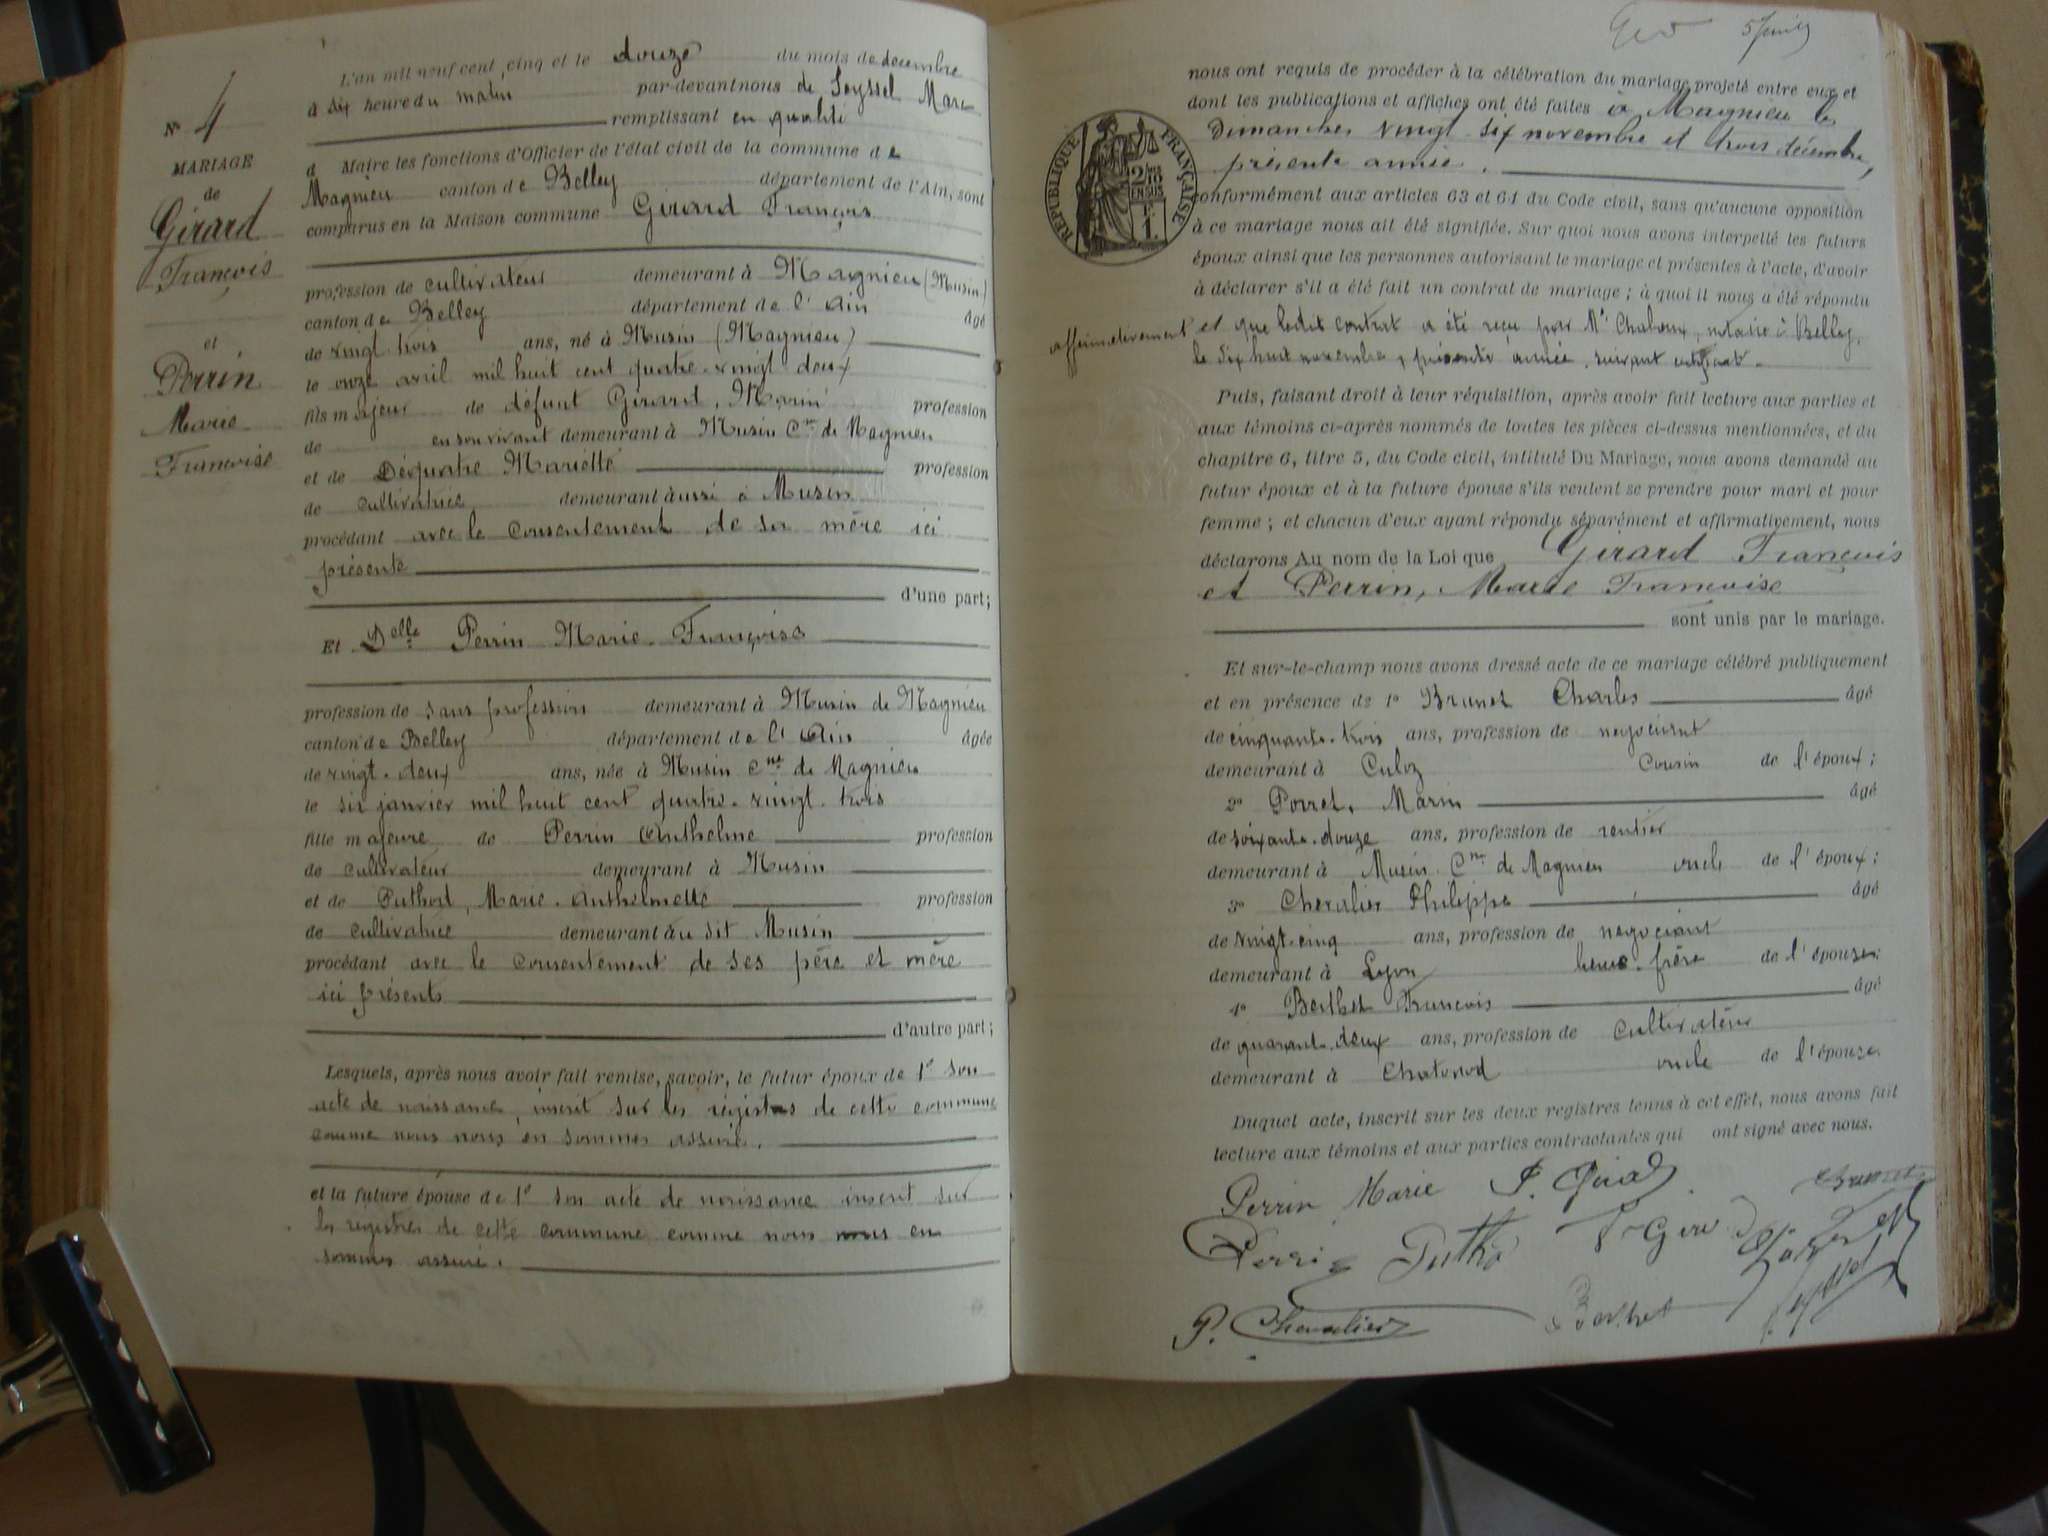 N° 4
MARIAGE
de
Girard
François
et
Perrin
Marie
Francoise
L'an mil neuf cent cinq et le douze du mois de decembre
à dix heure du matin par-devant nous de Seyssel Marc
remplissant en qualité
d Maire les fonctions d'Officier de l'état civil de la commune de
Magnieu canton de Belley département de l'Ain, sont
comparus en la Maison commune Girard François
profession de cultivateur demeurant à Magnieu (Musin)
canton de Belley département de l'Ain âgé
de vingt trois ans, né à Musin (Magnieu)
le onze avril mil huit cent quatre-vingt deux
fils majeur de défunt Girard, Marin profession
de en son vivant demeurant à Musin Cne de Magnieu
et de Déquatre Mariette profession
de cultivatrice demeurant aussi à Musin
procédant avec le consentement de sa mère ici
présente
d'une part;
Et Delle Perrin Marie-Françoise
profession de sans profession demeurant à Musin de Magnieu
canton de Belley département de l'Ain âgée
de vingt-deux ans, née à Musin Cne de Magnieu
le six janvier mil huit cent quatre-vingt-trois
fille majeure de Perrin Anthelme profession
de cultivateur demeurant à Musin
et de Puthod, Marie-Anthelmette profession
de cultivatrice demeurant au dit Musin
procédant avec le consentement de ses père et mère
ici présents
d'autre part;
Lesquels, après nous avoir fait remise, savoir, le futur époux de 1° son
acte de naissance, inscrit sur les registres de cette commune
comme nous nous en sommes assuré.
et la future épouse de 1° son acte de naissance inscrit sur
les registres de cette commune comme nous nous en
sommes assuré.
nous ont requis de procéder à la célébration du mariage projeté entre eux et
dont les publications et affiches ont été faites à Magnieu les
dimanches vingt-six novembre et trois décembre,
présente année.
RÉPUBLIQUE FRANÇAISE
conformément aux articles 63 et 64 du Code civil, sans qu'aucune opposition
à ce mariage nous ait été signifiée. Sur quoi nous avons interpellé les futurs
époux ainsi que les personnes autorisant le mariage et présentes à l'acte, d'avoir
à déclarer s'il a été fait un contrat de mariage; à quoi il nous a été répondu
affirmativement et que ledit contrat a été reçu par Me, notaire à Belley,
le dix huit novembre, présente année, suivant
Puis, faisant droit à leur réquisition, après avoir fait lecture aux parties et
aux témoins ci-après nommés de toutes les pièces ci-dessus mentionnées, et du
chapitre 6, titre 5, du Code civil, intitulé Du Mariage, nous avons demandé au
futur époux et à la future épouse s'ils veulent se prendre pour mari et pour
femme; et chacun d'eux ayant répondu séparément et affirmativement, nous
déclarons Au nom de la Loi que Girard François
et Perrin, Marie Francoise
sont unis par le mariage.
Et sur-le-champ nous avons dressé acte de ce mariage célébré publiquement
et en présence de 1° Brunet Charles âgé
de cinquante-trois ans, profession de negociant
demeurant à Culoz cousin de l'époux;
2° Porret, Marin âgé
de soixante-douze ans, profession de rentier
demeurant à Musin Cne de Magnieu oncle de l'époux;
3° Chevalier Philippe âgé
de vingt-cinq ans, profession de negociant
demeurant à Lyon beau-frère de l'épouse;
4° Berthet Francois âgé
de quarante-deux ans, profession de cultivateur
demeurant à Chatonod oncle de l'épouse.
Duquel acte, inscrit sur les deux registres tenus à cet effet, nous avons fait
lecture aux témoins et aux parties contractantes qui ont signé avec nous.
Perrin Marie
Perrin Putho
P. Chevalier Berthet